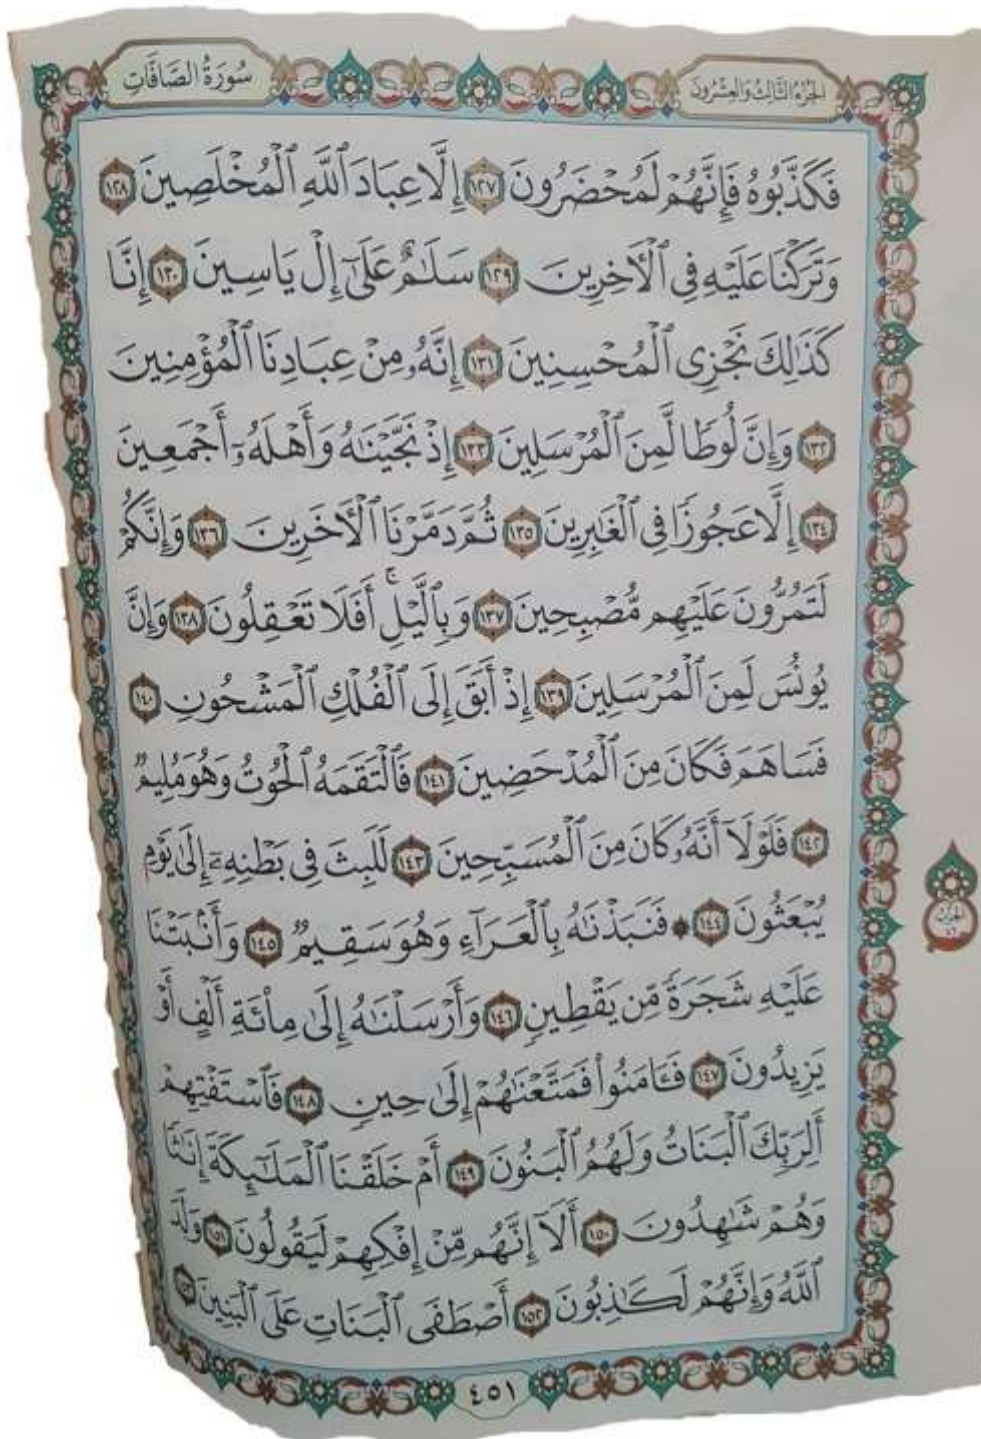 الجزء الثالث والعشرون
سورة الصافات
فَكَذَّبُوهُ فَإِنَّهُمْ لَمُحْضَرُونَ ١٢٧ إِلَّا عِبَادَ ٱللَّهِ ٱلْمُخْلَصِينَ ١٢٨
وَتَرَكْنَا عَلَيْهِ فِى ٱلْأَخِرِينَ ١٢٩ سَلَـٰمٌ عَلَىٰٓ إِلْ يَاسِينَ ١٣٠ إِنَّا
كَذَٰلِكَ نَجْزِى ٱلْمُحْسِنِينَ ١٣١ إِنَّهُۥ مِنْ عِبَادِنَا ٱلْمُؤْمِنِينَ
١٣٢ وَإِنَّ لُوطًا لَّمِنَ ٱلْمُرْسَلِينَ ١٣٣ إِذْ نَجَّيْنَـٰهُ وَأَهْلَهُۥٓ أَجْمَعِينَ
١٣٤ إِلَّا عَجُوزًا فِى ٱلْغَـٰبِرِينَ ١٣٥ ثُمَّ دَمَّرْنَا ٱلْأَخَرِينَ ١٣٦ وَإِنَّكُمْ
لَتَمُرُّونَ عَلَيْهِم مُّصْبِحِينَ ١٣٧ وَبِٱلَّيْلِ ۚ أَفَلَا تَعْقِلُونَ ١٣٨ وَإِنَّ
يُونُسَ لَمِنَ ٱلْمُرْسَلِينَ ١٣٩ إِذْ أَبَقَ إِلَى ٱلْفُلْكِ ٱلْمَشْحُونِ ١٤٠
فَسَاهَمَ فَكَانَ مِنَ ٱلْمُدْحَضِينَ ١٤١ فَٱلْتَقَمَهُ ٱلْحُوتُ وَهُوَ مُلِيمٌ
١٤٢ فَلَوْلَآ أَنَّهُۥ كَانَ مِنَ ٱلْمُسَبِّحِينَ ١٤٣ لَلَبِثَ فِى بَطْنِهِۦٓ إِلَىٰ يَوْمِ
يُبْعَثُونَ ١٤٤ ۞ فَنَبَذْنَـٰهُ بِٱلْعَرَآءِ وَهُوَ سَقِيمٌ ١٤٥ وَأَنۢبَتْنَا
عَلَيْهِ شَجَرَةً مِّن يَقْطِينٍ ١٤٦ وَأَرْسَلْنَـٰهُ إِلَىٰ مِا۟ئَةِ أَلْفٍ أَوْ
يَزِيدُونَ ١٤٧ فَـَٔامَنُوا۟ فَمَتَّعْنَـٰهُمْ إِلَىٰ حِينٍ ١٤٨ فَٱسْتَفْتِهِمْ
أَلِرَبِّكَ ٱلْبَنَاتُ وَلَهُمُ ٱلْبَنُونَ ١٤٩ أَمْ خَلَقْنَا ٱلْمَلَـٰٓئِكَةَ إِنَـٰثًا
وَهُمْ شَـٰهِدُونَ ١٥٠ أَلَآ إِنَّهُم مِّنْ إِفْكِهِمْ لَيَقُولُونَ ١٥١ وَلَدَ
ٱللَّهُ وَإِنَّهُمْ لَكَـٰذِبُونَ ١٥٢ أَصْطَفَى ٱلْبَنَاتِ عَلَى ٱلْبَنِينَ ١٥٣
٤٥١